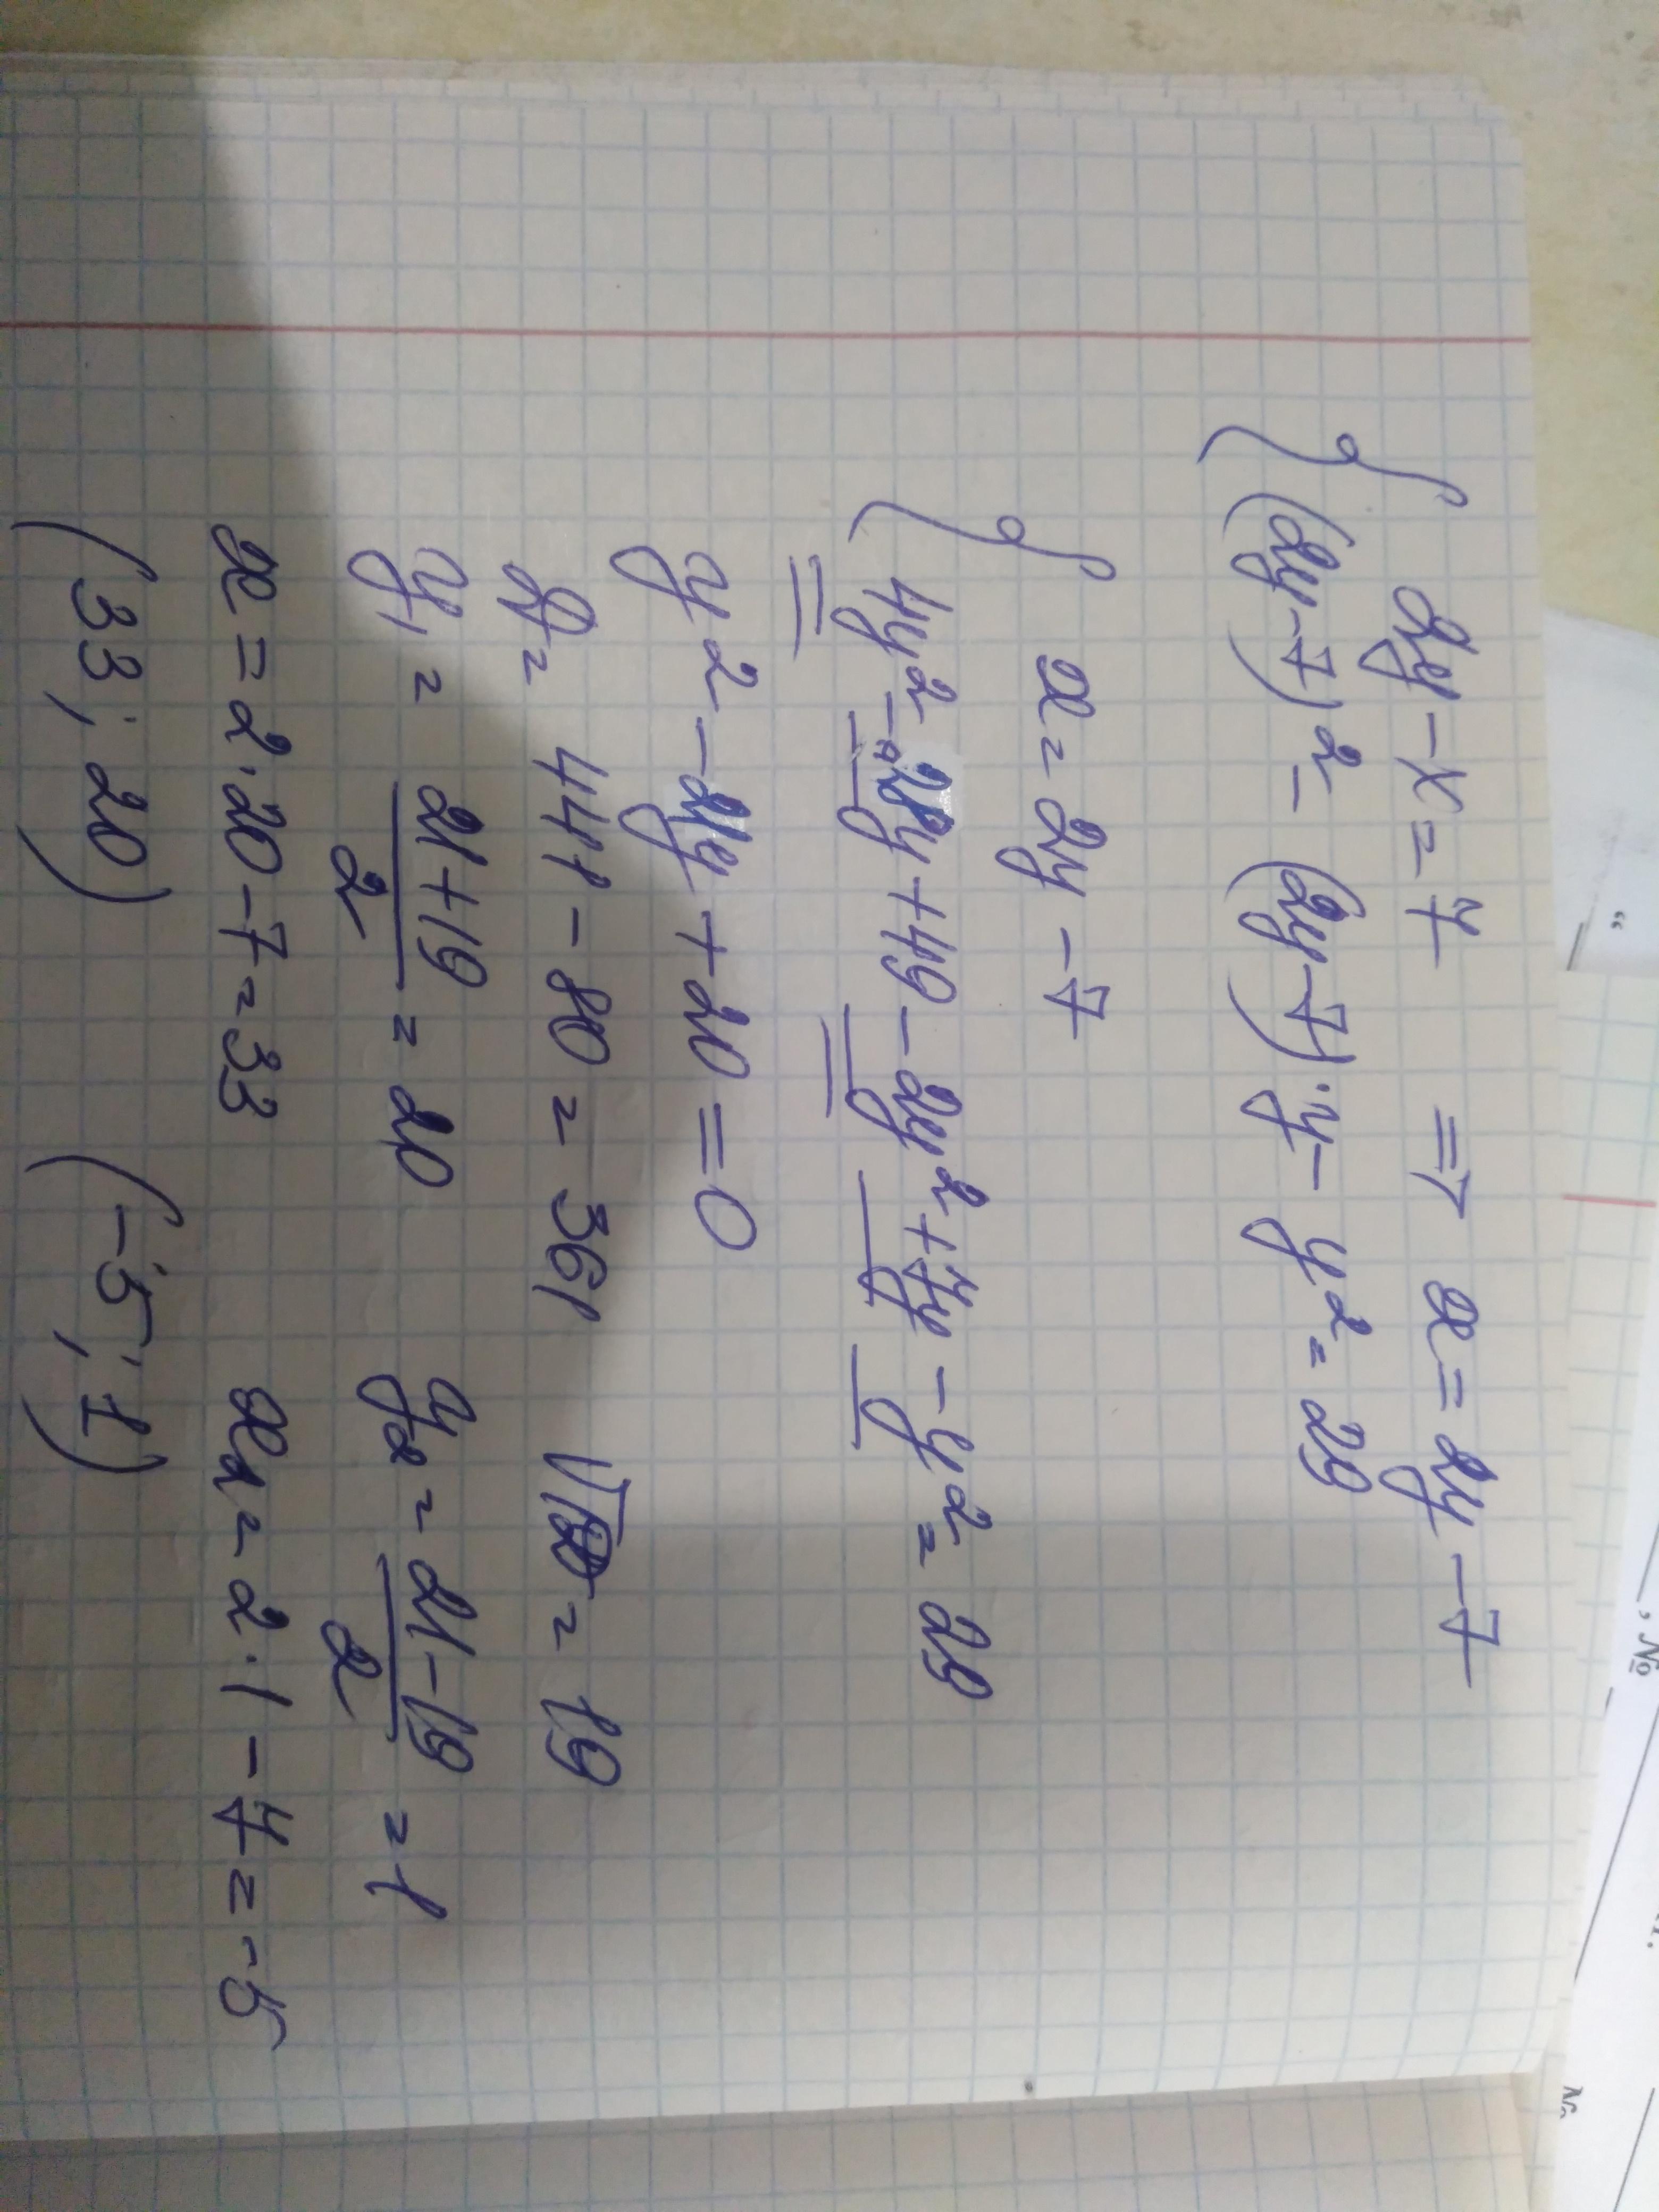 2y - x = 7 => x = 2y - 7
(2y-7)² - (2y-7)·y - y² = 29
x = 2y - 7
4y² - 28y + 49 - 2y² + 7y - y² = 29
y² - 21y + 20 = 0
D = 441 - 80 = 361 √D = 19
y₁ = (21+19)/2 = 20 y₂ = (21-19)/2 = 1
x = 2·20 - 7 = 33 x₂ = 2·1 - 7 = -5
(33; 20) (-5; 1)
, №
№